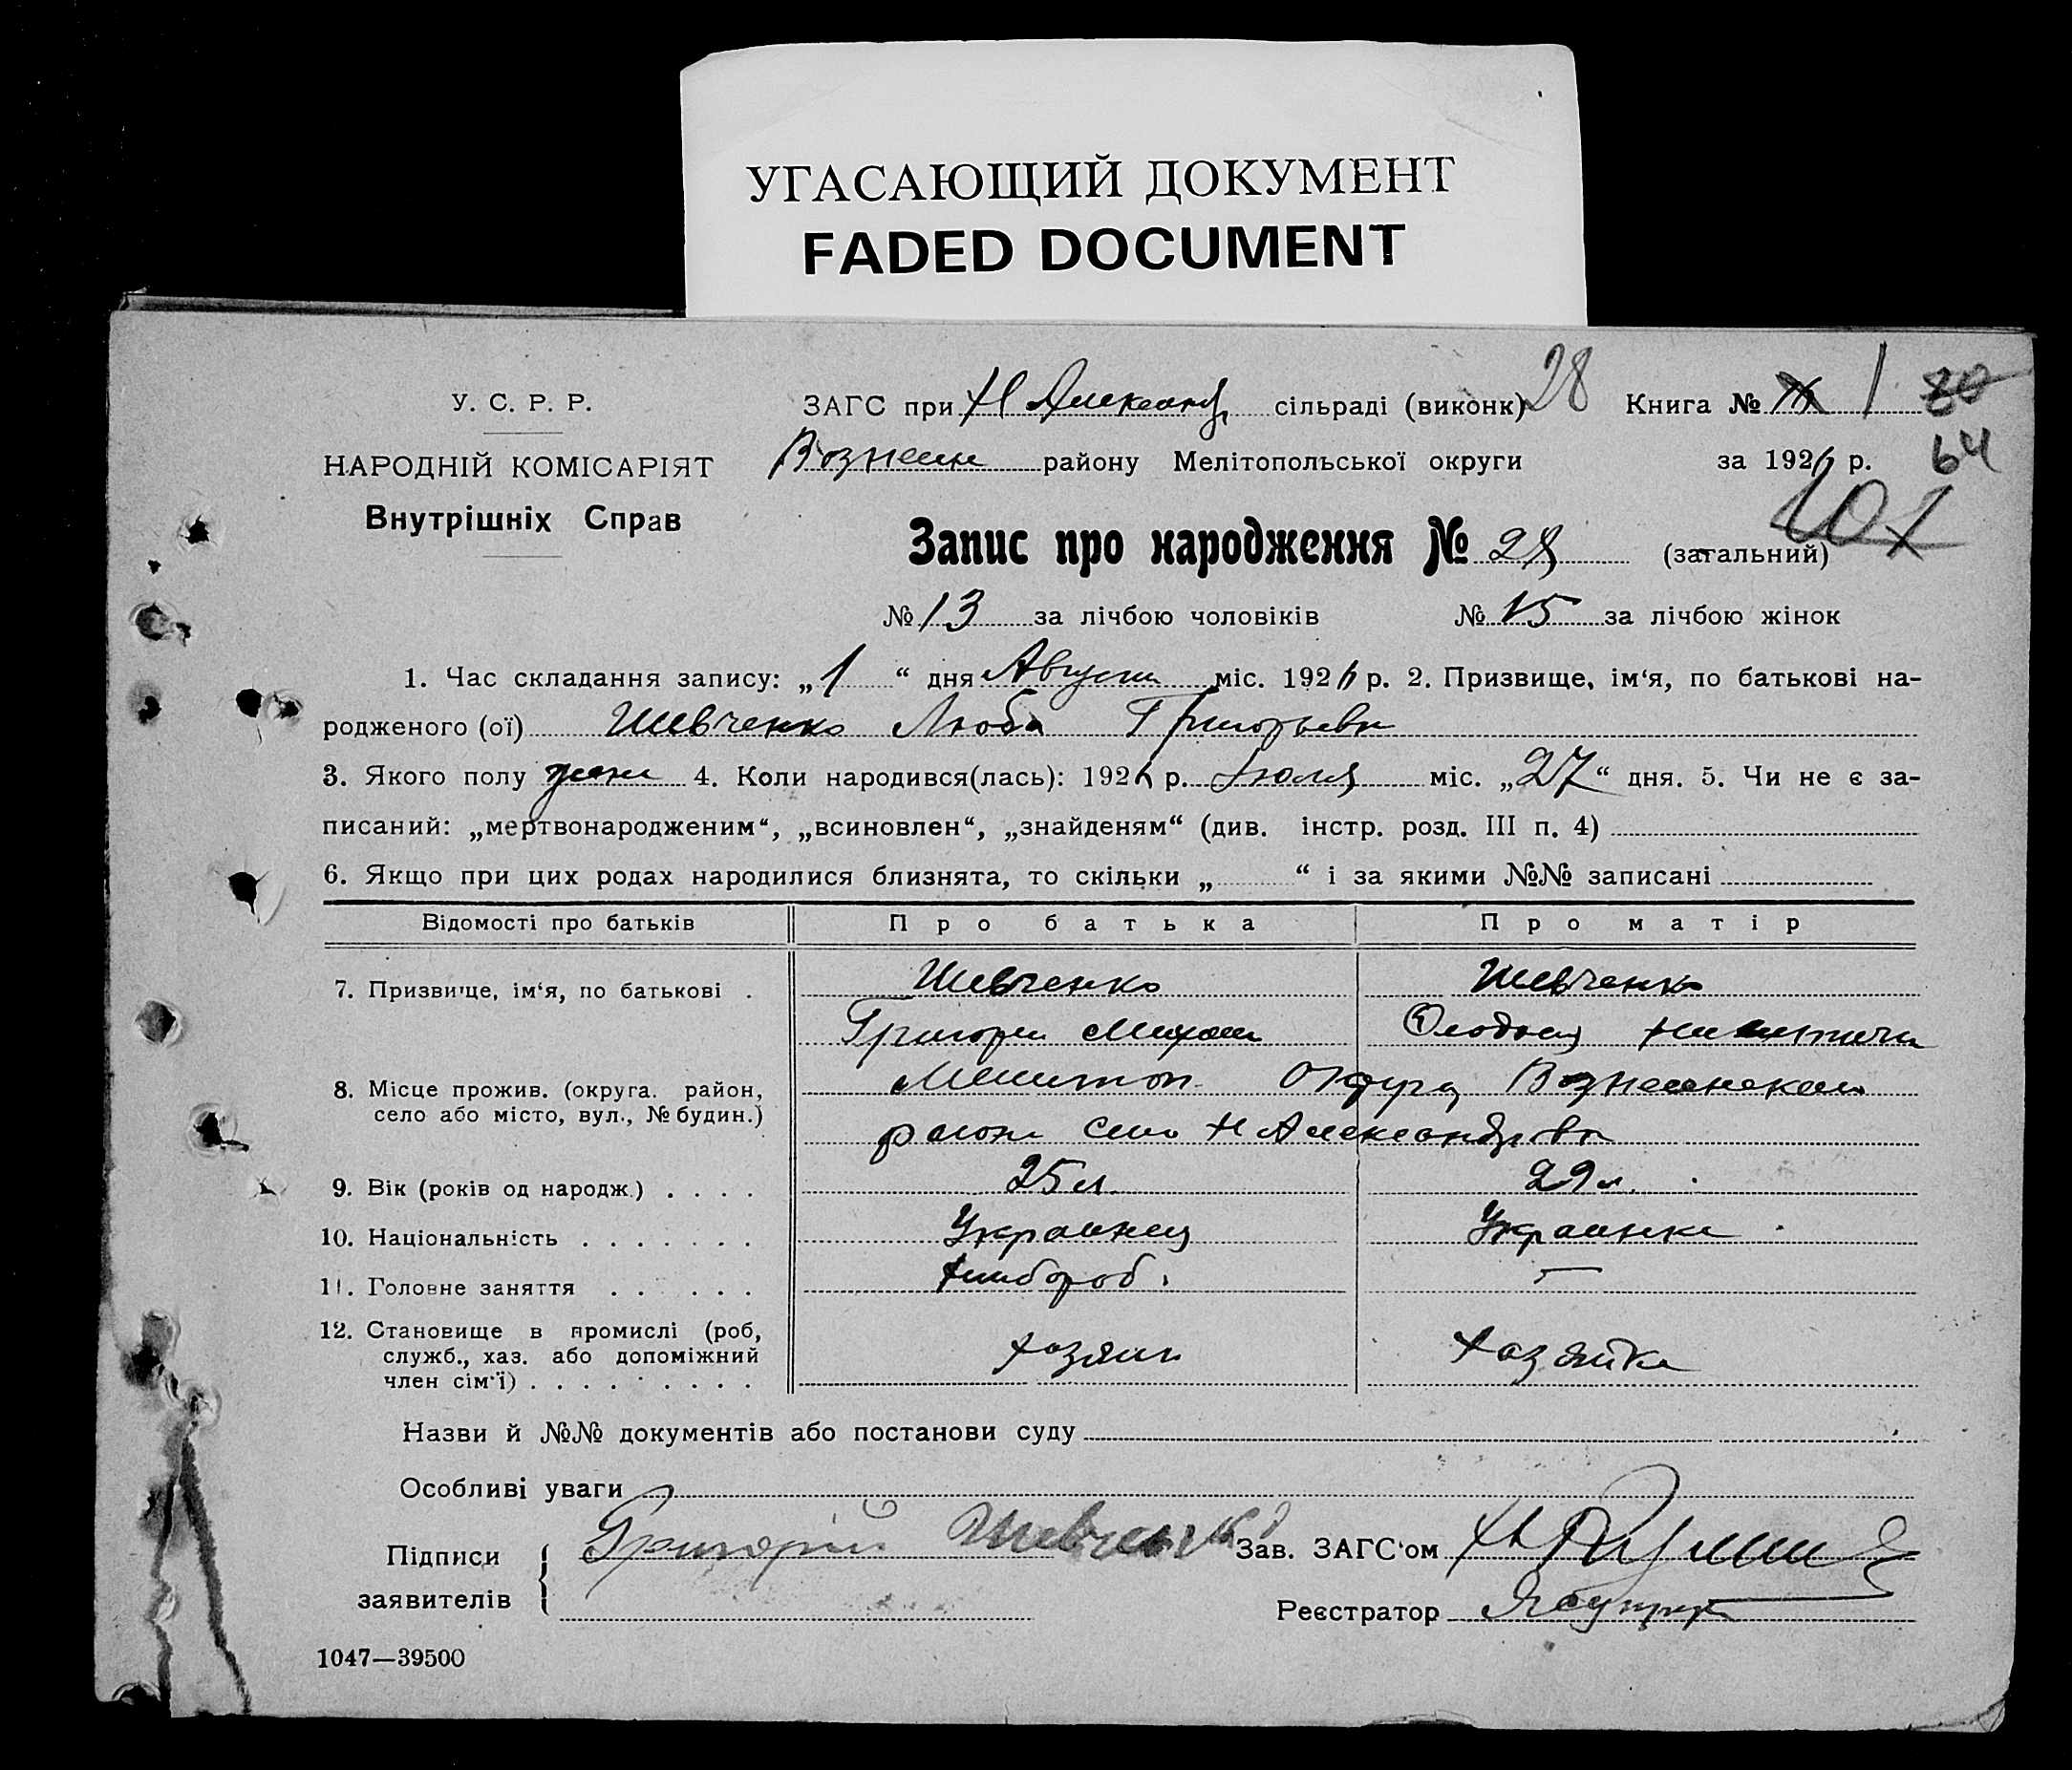 УГАСАЮЩИЙ ДОКУМЕНТ
FADED DOCUMENT
У. С. Р. Р.
НАРОДНІЙ КОМІСАРІЯТ
Внутрішніх Справ
ЗАГС при Н Александр сільраді (виконк) 28 Книга № 1 80
Вознесен району Мелітопольської округи за 1926 р. 64
107
Запис про народження № 28 (загальний)
№ 13 за лічбою чоловіків № 15 за лічбою жінок
1. Час складання запису: „1“ дня Августа міс. 1926 р. 2. Призвище, ім‘я, по батькові на-
родженого (ої) Шевченко Люба Григорьевн
3. Якого полу жен 4. Коли народився(лась): 1926 р. Июля міс. „27“ дня. 5. Чи не є за-
писаний: „мертвонародженим“, „всиновлен“, „знайденям“ (див. інстр. розд. III п. 4)
6. Якщо при цих родах народилися близнята, то скільки „ “ і за якими №№ записані
Відомості про батьків Про батька Про матір
7. Призвище, ім‘я, по батькові . Шевченко Шевченко
Григори Михаи
8. Місце прожив. (округа. район, Мелитоп Округа Вознесенском
село або місто, вул., № будин.) район село Н Александровк
9. Вік (років од народж.) . . . . 25 л. 29 л.
10. Національність . . . . . . . Украинец Украинка
11. Головне заняття . . . . . . Хлибороб. —
12. Становище в промислі (роб, хозяин хозяйка
служб., хаз. або допоміжний
член сім‘ї) . . . . . . . . .
Назви й №№ документів або постанови суду
Особливі уваги
Підписи Григорий Шевченко Зав. ЗАГС‘ом
заявителів Реєстратор
1047—39500